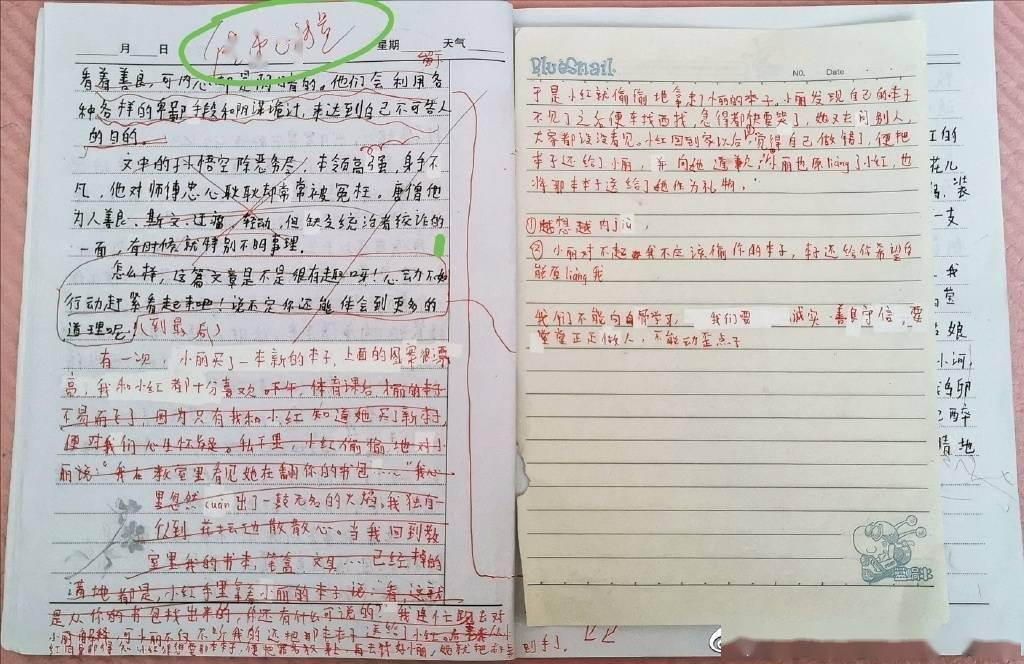 月 日 星期 天气
看着善良,可内心却是阴暗的。他们会利用各
种各样的卑鄙手段和阴谋诡计,来达到自己不可告人
的目的。
文中的孙悟空除恶务尽,本领高强,身手不
凡,他对师傅忠心耿耿却常常被冤枉。唐僧他
为人善良、斯文、
但缺乏统治者狡诈的
一面,有时候就特别不明事理。
怎么样,这篇文章是不是很有趣呀!心动不如
行动赶紧看起来吧!说不定你还能体会到更多的
道理呢!(到最后)
有一次,小丽买了一本新的本子,上面的图案很漂
亮,我和小红都十分喜欢。下午,体育课后小丽的本子
不易而了,因为只有我和小红知道她买了新本子,
便对我们心生怀疑。私下里,小红偷偷地对小
丽说:“我在教室里看见她在翻你的书包……”我心
里忽然cuan出了一鼓无名的火焰,我独自一
人到花坛边散散心。当我回到教
室里我的书本,笔盒、文具…已经掉的
满地都是,小红手里拿着小丽的本子说:看,这就
是从你的书包找出来的,你还有什么可说的?我连忙跑去对
小丽解释,可小丽不仅不听我的还把那本本子送给了小红。
BlueSnail
NO. Date
于是小红就偷偷地拿走了小丽的本子。小丽发现自己的本子
不见了之后便东找西找,急得都快哭了,她又去问别人,
大家都说没看见。小红回到家以后,觉得自己做错了,便把
本子还给了小丽,并向她道歉,小丽也原liàng了小红,也
将那本本子送给了她作为礼物。
①越想越内jiù,
② 小丽对不起,我不应该偷你的本子,
还给你希望你
能原liàng我
我们不能向自 学习, 我们要 诚实、善良守信,要
堂堂正正做人,不能动歪点子
红的
花儿
装
一支
我
娘
小河,
卵
醉
晴地
到手了